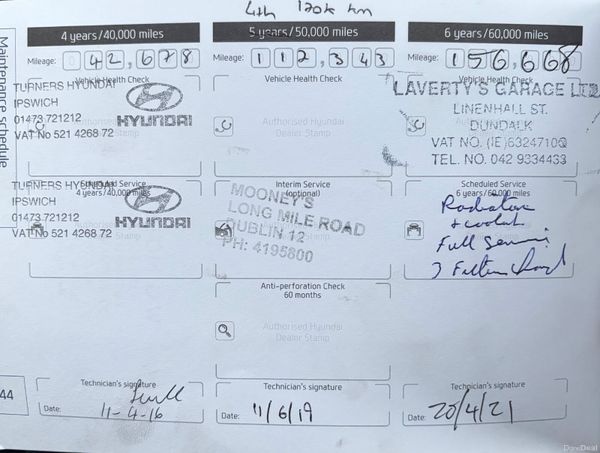 4th 120k km
4 years/40,000 miles
Mileage: 042,678
Vehicle Health Check
TURNERS HYUNDAI
IPSWICH
01473 721212
VAT No 521 4268 72
HYUNDAI
Scheduled Service
4 years/40,000 miles
TURNERS HYUNDAI
IPSWICH
01473 721212
VAT No 521 4268 72
HYUNDAI
Technician's signature
Date: 11-4-16
5 years/50,000 miles
Mileage: 112,343
Vehicle Health Check
Authorised Hyundai
Dealer Stamp
Interim Service
(optional)
MOONEY'S
LONG MILE ROAD
DUBLIN 12
PH: 4195800
Anti-perforation Check
60 months
Authorised Hyundai
Dealer Stamp
Technician's signature
Date: 11/6/19
6 years/60,000 miles
Mileage: 156,668
Vehicle Health Check
LAVERTY'S GARAGE LTD
LINENHALL ST.
DUNDALK
VAT NO. (IE)6324710Q
TEL. NO. 042 9334433
Scheduled Service
6 years/60,000 miles
Radiator
+ coolant
Full Service
3 Filters Changed
Technician's signature
Date: 20/4/21
Maintenance schedule
44
DoneDeal